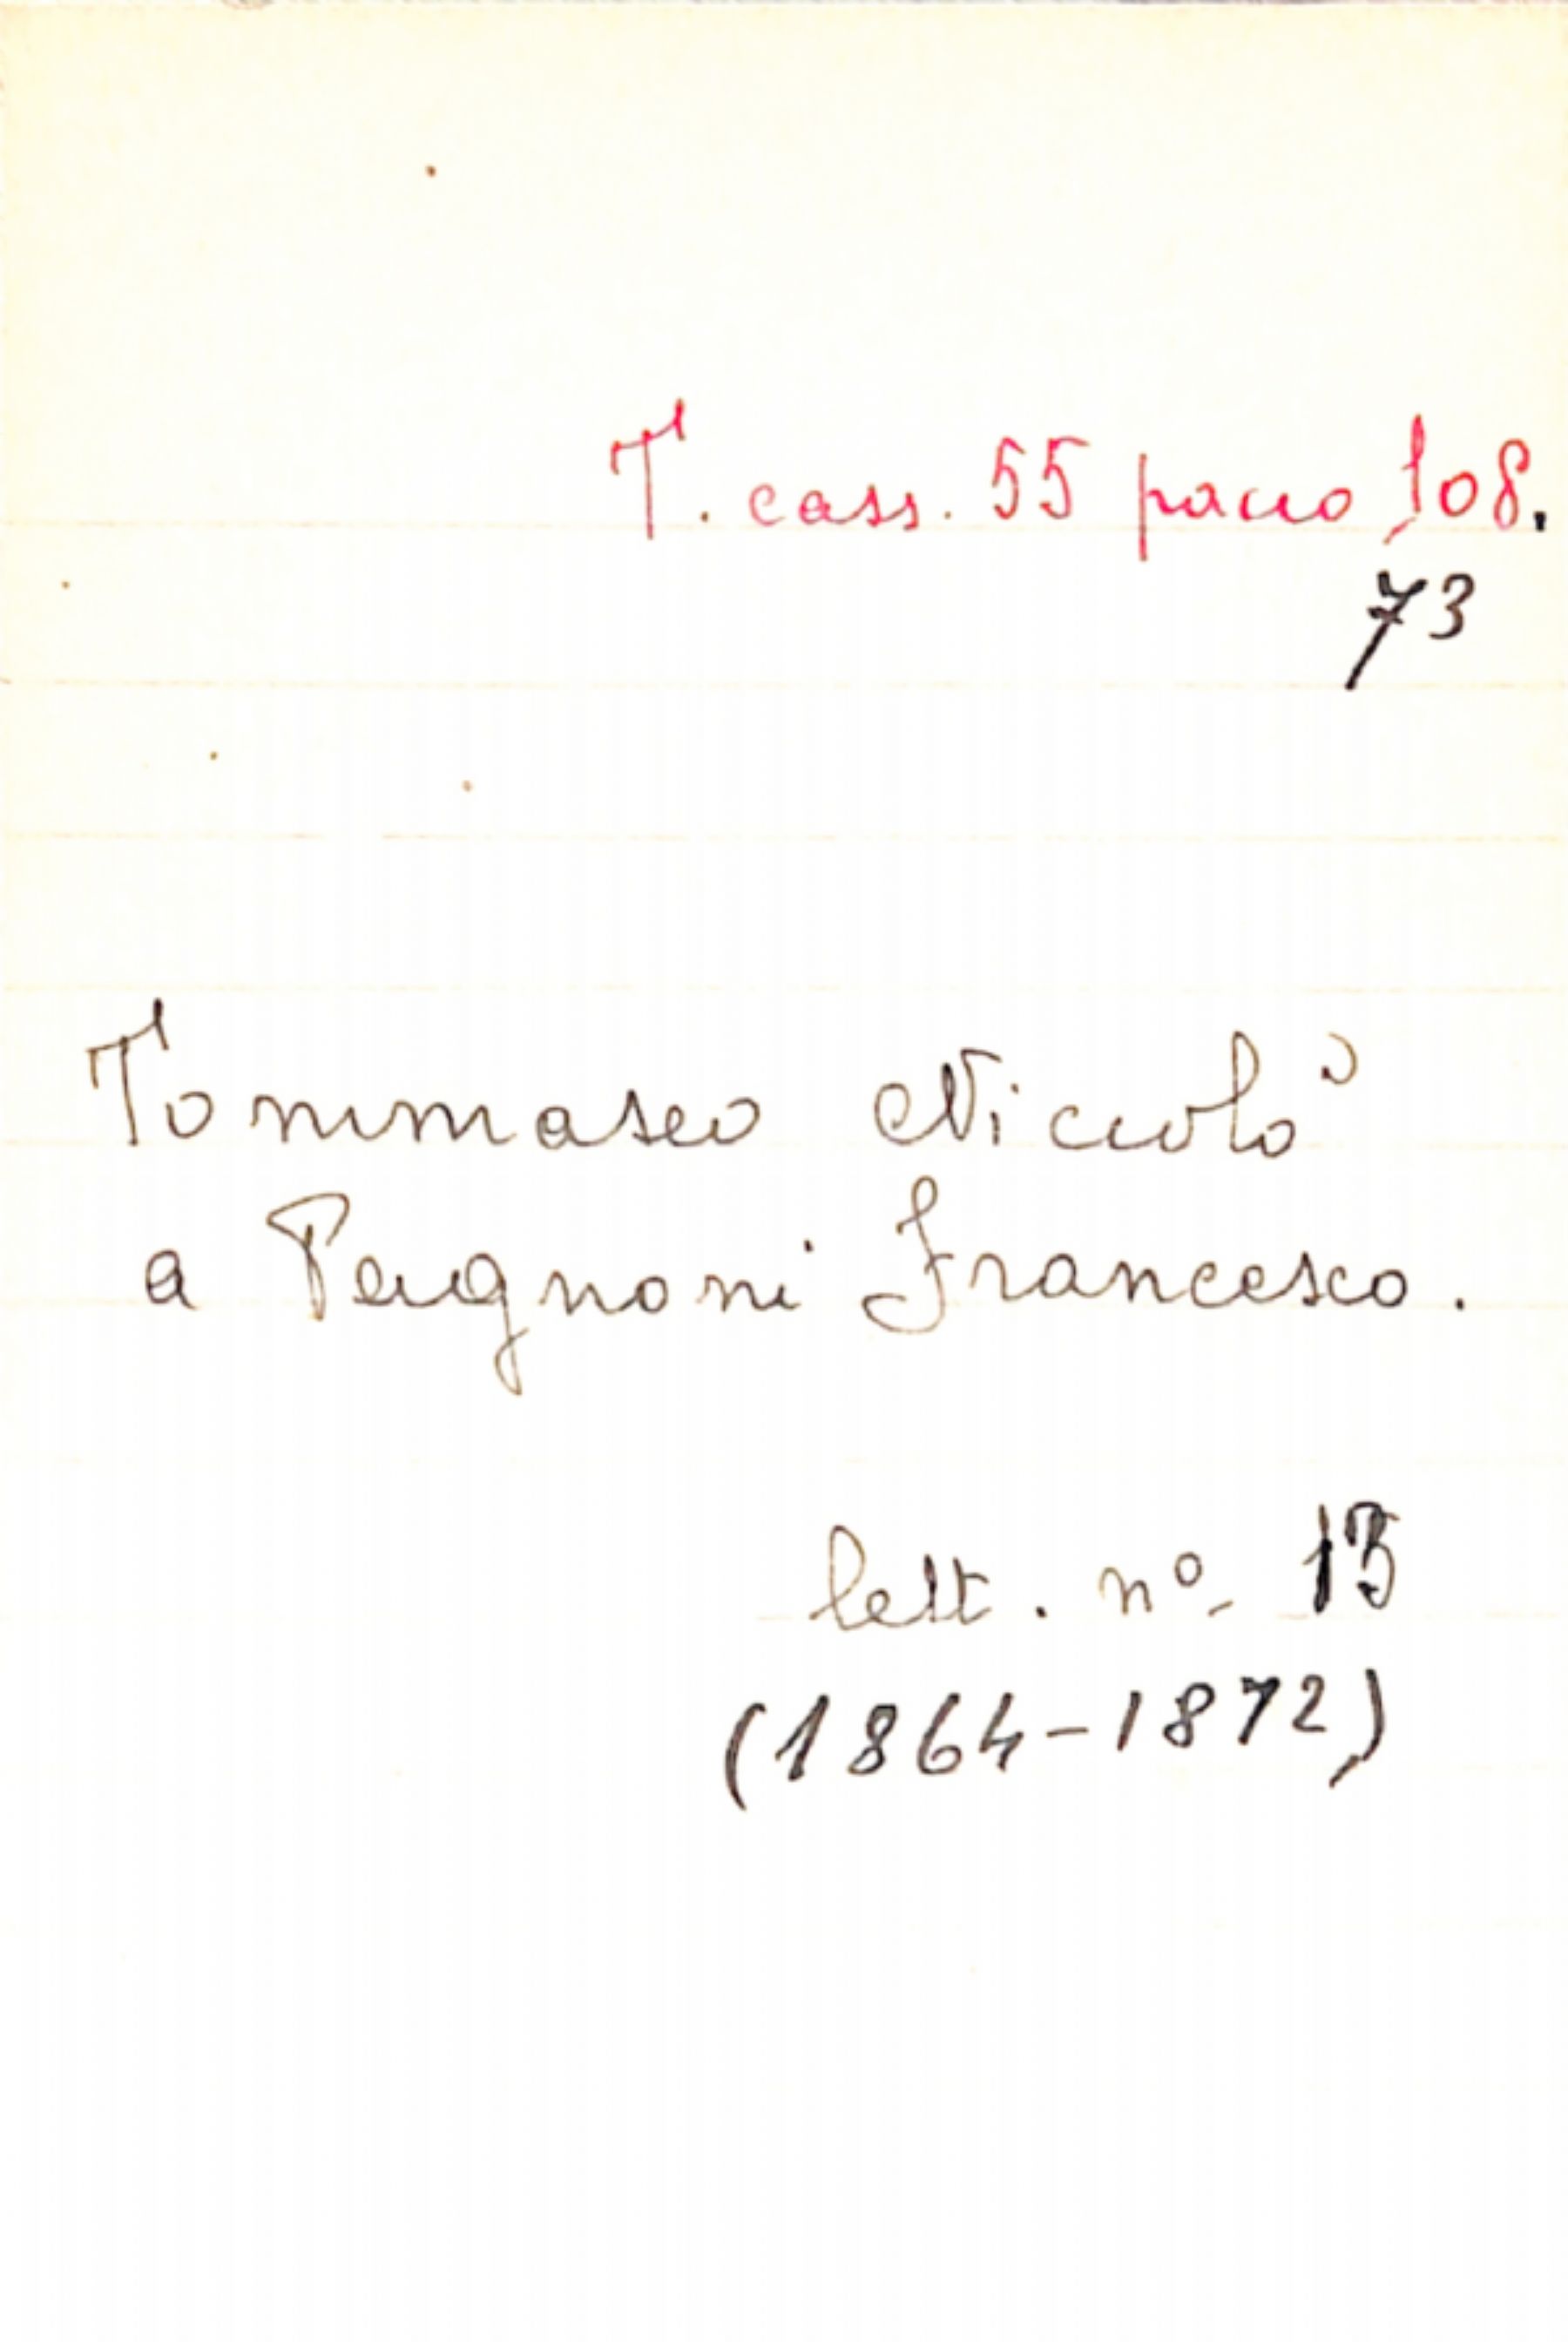 T. cass. 55 pacco 108.
73
Tommaseo Niccolò
a Pagnoni Francesco.
lett. nº 13
(1864-1872)